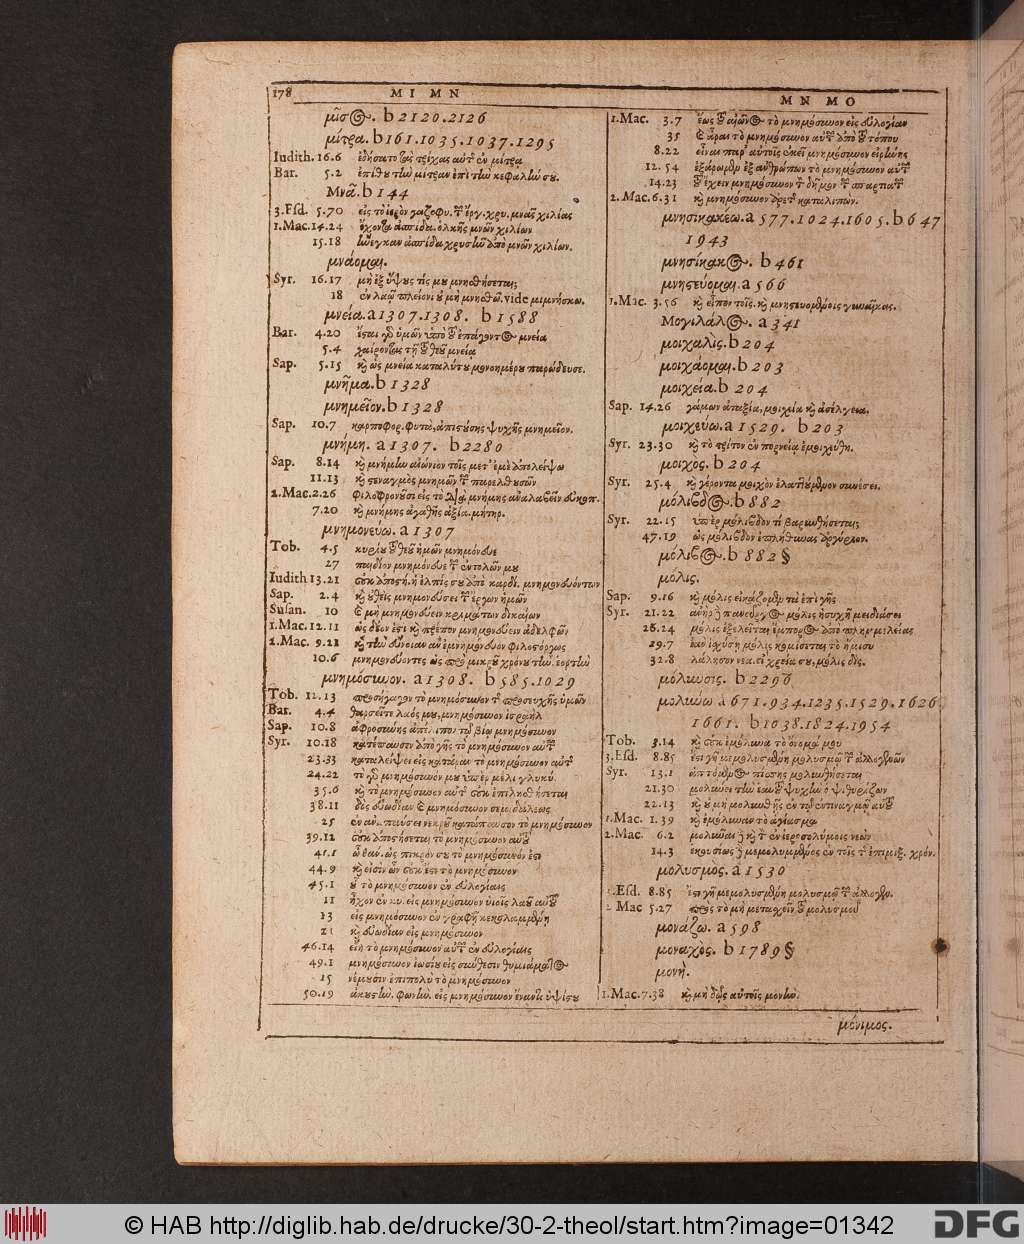 178 MI MN
μῖσος. b 2120.2126
μίτρα. b 161.1035.1037.1295
Iudith. 16.6 ἐδήσατο τὰς τρίχας αὐτ ἐν μίτρᾳ
Bar. 5.2 ἐπίθου τὴν μίτραν ἐπὶ τὴν κεφαλήν σου.
Μνᾶ. b 144
3.Esd. 5.70 εἰς τὸ ἱερὸν
1.Mac. 14.24 ἔχοντα ἀσπίδα ὁλκῆς μνῶν χιλίων
15.18 ἤνεγκαν ἀσπίδα χρυσῆν ἀπὸ μνῶν χιλίων.
μνάομαι.
Syr. 16.17 μὴ ἐξ ὕψους τίς μου μνησθήσεται;
18 ἐν λαῷ πλείονι οὐ μὴ μνησθῶ. vide μιμνήσκω.
μνεία. a 1307.1308. b 1588
Bar. 4.20 ἔσται γὸ ὑμῶν ὑπὸ τοῦ ἐπάγοντος μνεία
5.4 χαίροντας τῇ τοῦ θεοῦ μνείᾳ
Sap. 5.15 καὶ ὡς μνεία καταλύτου μονοημέρου παρώδευσε.
μνῆμα. b 1328
μνημεῖον. b 1328
Sap. 10.7 καρποφορ. φυτὰ, ἀπιστούσης ψυχῆς μνημεῖον.
μνήμη. a 1307. b 2280
Sap. 8.14 καὶ μνήμην αἰώνιον τοῖς μετ' ἐμὲ ἀπολείψω
11.13 καὶ στεναγμὸς μνημῶν τῶν παρελθουσῶν
2.Mac. 2.26 φιλοφρονοῦσι εἰς τὸ διὰ μνήμης ἀναλαβεῖν εὐκοπ.
7.20 καὶ μνήμης ἀγαθῆς ἀξία. μήτηρ.
μνημονεύω. a 1307
Tob. 4.5 κυρίου τοῦ θεοῦ ἡμῶν μνημόνευε
27 παιδίον μνημόνευε τῶν ἐντολῶν μου
Iudith 13.21 οὐκ ἀποστή. ἡ ἐλπίς σου ἀπὸ καρδί. μνημονευόντων
Sap. 2.4 καὶ οὐθεὶς μνημονεύσει τῶν ἔργων ἡμῶν
Susan. 10 καὶ μὴ μνημονεύειν κριμάτων δικαίων
1.Mac. 12.11 ὡς δέον ἐστὶ καὶ πρέπον μνημονεύειν ἀδελφῶν
2.Mac. 9.21 καὶ τὴν εὔνοιαν ἂν ἐμνημόνευον φιλοστόργως
10.6 μνημονεύοντες ὡς πρὸ μικροῦ χρόνου τὴν ἑορτὴν
μνημόσυνον. a 1308. b 585.1029
Tob. 12.13 προσήγαγον τὸ μνημόσυνον τ προσευχῆς ὑμῶν
Bar. 4.4 θαρσεῖτε λαός μου, μνημόσυνον ἰσραήλ
Sap. 10.8 ἀφροσύνης ἀπέλιπον τῷ βίῳ μνημόσυνον
Syr. 10.18 κατέπαυσεν ἀπὸ γῆς τὸ μνημόσυνον αὐτῶν
23.33 καταλείψει εἰς κατάραν τὸ μνημόσυνον αὐτ
24.22 τὸ γὸ μνημόσυνόν μου ὑπὲρ μέλι γλυκύ.
35.6 καὶ τὸ μνημόσυνον αὐτ οὐκ ἐπιλησθήσεται
38.11 δὸς εὐωδίαν καὶ μνημόσυνον σεμιδάλεως
25 ἐν ἀναπαύσει νεκροῦ κατάπαυσον τὸ μνημόσυνον
39.12 οὐκ ἀποστήσεται τὸ μνημόσυνον αὐτοῦ
41.1 ὦ θαν. ὡς πικρόν σου τὸ μνημόσυνόν ἐστι
44.9 καὶ εἰσὶν ὧν οὐκ ἔστι τὸ μνημόσυνον
45.1 οὗ τὸ μνημόσυνον ἐν εὐλογίαις
11 ἦχον ἐν να. εἰς μνημόσυνον υἱοῖς λαοῦ αὐτοῦ
13 εἰς μνημόσυνον ἐν γραφῇ κεκολαμμένη
21 καὶ εὐωδίαν εἰς μνημόσυνον
46.14 εἴη τὸ μνημόσυνον αὐτῶν ἐν εὐλογίαις
49.1 μνημόσυνον ἰωσίου εἰς σύνθεσιν θυμιάματος
15 νέμουσιν ἐπιπολὺ τὸ μνημόσυνον
50.19 ἀκουστὴν φωνὴν εἰς μνημόσυνον ἔναντι ὑψίστου
MN MO
1.Mac. 3.7 ἕως τοῦ αἰῶνος τὸ μνημόσυνον εἰς εὐλογίαν
35 καὶ ἆραι τὸ μνημόσυνον αὐτῶν ἀπὸ τοῦ τόπου
8.22 εἶναι παρ' αὐτοῖς ἐκεῖ μνημόσυνον εἰρήνης
12.54 ἐξάρωμεν ἐξ ἀνθρώπων τὸ μνημόσυνον αὐτῶν
14.23 τοῦ ἔχειν μνημόσυνον τ δῆμον τῶν σπαρτιατῶν
2.Mac. 6.31 καὶ μνημόσυνον ἀρετ καταλιπών.
μνησικακέω. a 577.1024.1605. b 647
1943
μνησίκακος. b 461
μνηστεύομαι. a 566
1.Mac. 3.56 καὶ εἶπον τοῖς. καὶ μνηστευομένοις γυναῖκας.
Μογιλάλος. a 341
μοιχαλὶς. b 204
μοιχάομαι. b 203
μοιχεία. b 204
Sap. 14.26 γάμων ἀταξία, μοιχεία καὶ ἀσέλγεια.
μοιχεύω. a 1529. b 203
Syr. 23.30 καὶ τὸ τρίτον ἐν πορνείᾳ ἐμοιχεύθη.
μοιχος. b 204
Syr. 25.4 καὶ γέροντα μοιχὸν ἐλαττούμενον συνέσει.
μόλιβδος. b 882
Syr. 22.15 ὑπὲρ μόλιβδον τί βαρυνθήσεται;
47.19 ὡς μόλιβδον ἐπλήθυνας ἀργύριον.
μόλιβος. b 882 §
μόλις.
Sap. 9.16 καὶ μόλις εἰκάζομεν τὰ ἐπὶ γῆς
Syr. 21.22 ἀνὴρ ἢ πανοῦργος μόλις ἡσυχῇ μειδιάσει
26.24 μόλις ἐξελεῖται ἔμπορος ἀπὸ πλημμελείας
29.7 ἐὰν ἰσχύσῃ μόλις κομίσεται τὸ ἥμισυ
32.8 λάλησον νεα. εἰ χρεία σου, μόλις δίς.
μόλυνσις. b 2296
μολύνω a 671.934.1235.1529.1626
1661. b 1038.1824.1954
Tob. 3.14 καὶ οὐκ ἐμόλυνα τὸ ὄνομά μου
3.Esd. 8.85 ἔστι γῆ μεμολυσμένη μολυσμῷ τῶν ἀλλογενῶν
Syr. 13.1 ἁπτόμενος πίσσης μολυνθήσεται
21.30 μολύνει τὴν ἑαυτοῦ ψυχὴν ὁ ψιθυρίζων
22.13 καὶ οὐ μὴ μολυνθῇς ἐν τῷ ἐντιναγμῷ αὐτοῦ
1.Mac. 1.39 καὶ ἐμόλυναν τὸ ἁγίασμα
2.Mac. 6.2 μολῦναι ἢ καὶ τ ἐν ἱεροσολύμοις νεὼν
14.3 ἑκουσίως ἢ μεμολυμμένος ἐν τοῖς τ ἐπιμιξ. χρόν.
μολυσμὸς. a 1530
3.Esd. 8.85 ἔστι γῆ μεμολυσμένη μολυσμῷ τῶν ἀλλογεν.
2.Mac 5.27 πρὸς τὸ μὴ μετασχεῖν τοῦ μολυσμοῦ
μονάζω. a 598
μοναχὸς. b 1789 §
μονή.
1.Mac. 7.38 καὶ μὴ δῷς αὐτοῖς μονήν.
μόνιμος.
© HAB http://diglib.hab.de/drucke/30-2-theol/start.htm?image=01342
DFG